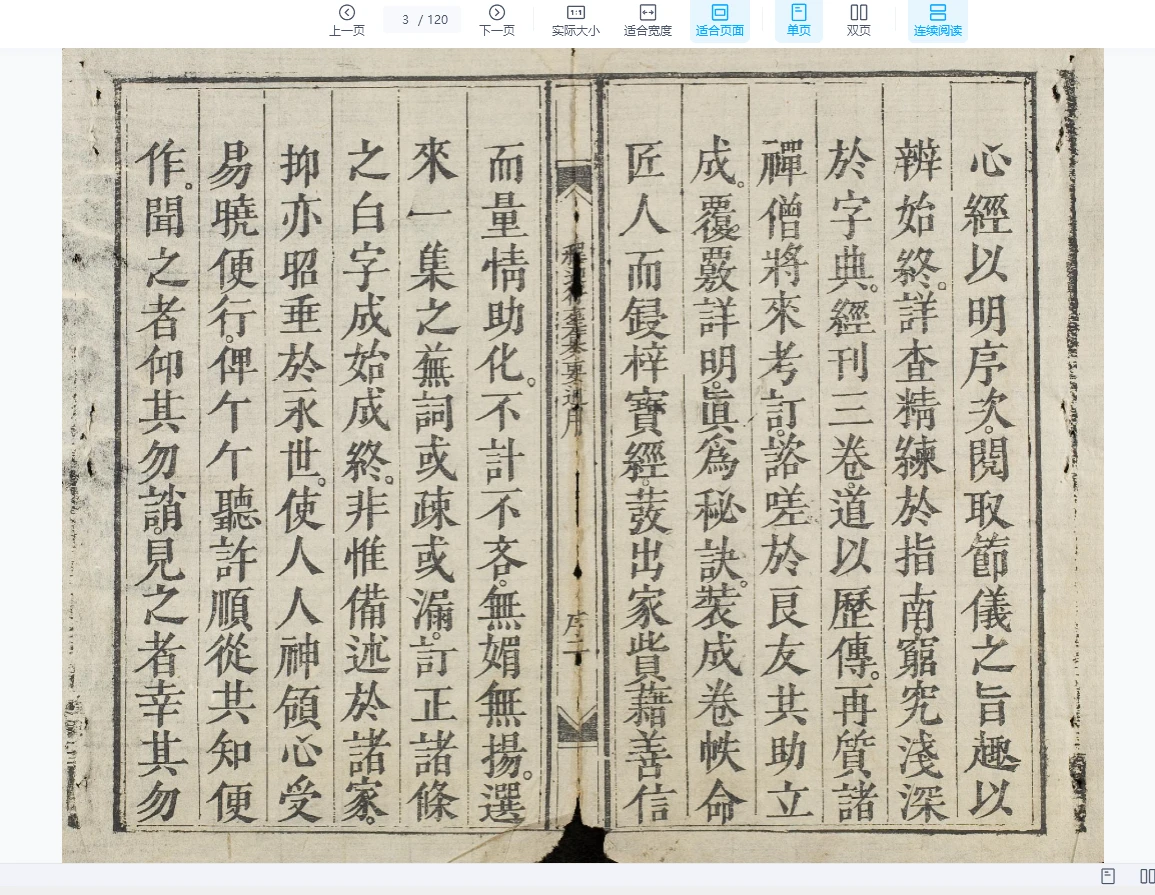 上一页 3 / 120 下一页 1:1 实际大小 适合宽度 适合页面 单页 双页 连续阅读
心經以明序次。閱取節儀之旨趣以
辨始終。詳查精練於指南。窮究淺深
於字典。經刊三卷。道以歷傳。再質諸
禪僧將來考訂。諮嗟於良友共助立
成。覆覈詳明。眞爲秘訣。裝成卷帙命
匠人而鋟梓寶經。蕟出家貲藉善信
要通用 序二
而量情助化。不計不吝。無媚無揚。選
來一集之蕪詞或疎或漏。訂正諸條
之白字成始成終。非惟備述於諸家。
抑亦昭垂於永世。使人人神領心受
易曉便行。俾午午聽許順從共知便
作。聞之者仰其勿誚。見之者幸其勿